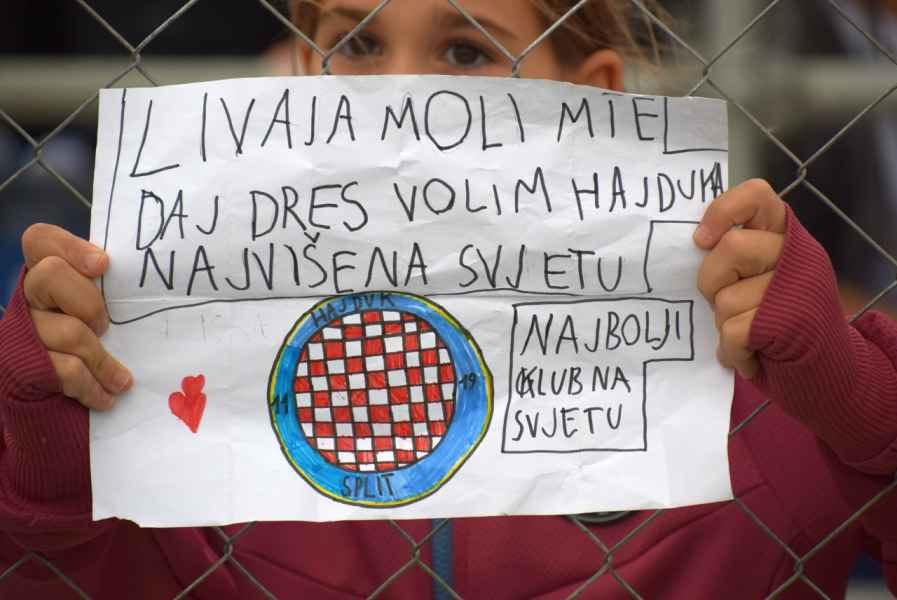 LIVAJA MOLI MTE
DAJ DRES VOLIM HAJDUKA
NAJVIŠENA SVJETU
HAJDUK
19 11
SPLIT
NAJBOLJI
KLUB NA
SVJETU